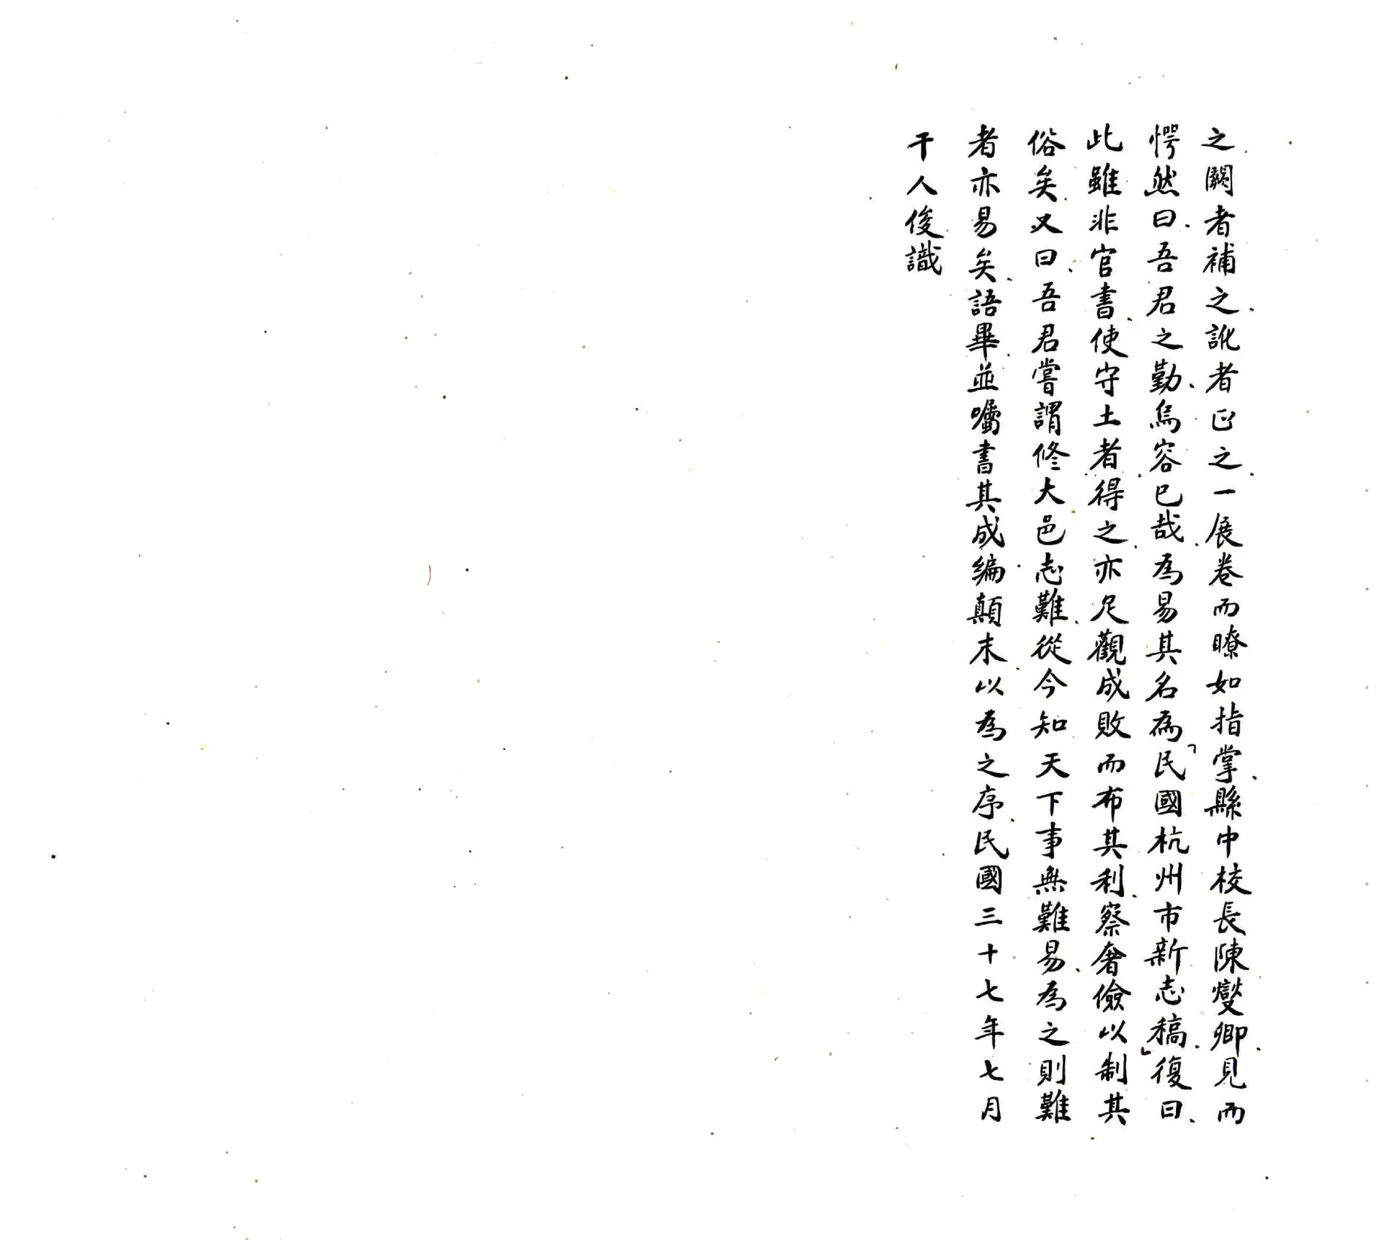 之闕者補之訛者正之一展卷而瞭如指掌縣中校長陳燮卿見而
愕然曰吾君之勤烏容已哉為易其名為「民國杭州市新志稿」復曰
此雖非官書使守土者得之亦足觀成敗而布其利察奢儉以制其
俗矣又曰吾君嘗謂修大邑志難從今知天下事無難易為之則難
者亦易矣語畢並囑書其成編顛末以為之序民國三十七年七月
干人俊識